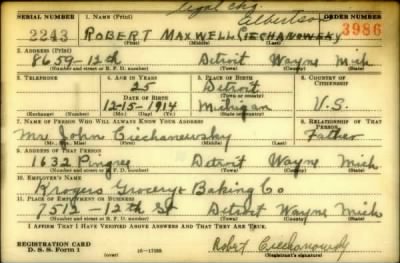 legal chg.
Albertson
SERIAL NUMBER 1. NAME (Print) ORDER NUMBER
2243 ROBERT MAXWELL CIECHANOWSKY 3986
(First) (Middle) (Last)
2. ADDRESS (Print)
8659-12th Detroit Wayne Mich
(Number and street or R. F. D. number) (Town) (County) (State)
3. TELEPHONE 4. AGE IN YEARS 5. PLACE OF BIRTH 6. COUNTRY OF CITIZENSHIP
25 Detroit
DATE OF BIRTH (Town or county)
12-15-1914 Michigan U.S.
(Exchange) (Number) (Mo.) (Day) (Yr.) (State or country)
7. NAME OF PERSON WHO WILL ALWAYS KNOW YOUR ADDRESS 8. RELATIONSHIP OF THAT PERSON
Mr. John Ciechanowsky Father
(Mr., Mrs., Miss) (First) (Middle) (Last)
9. ADDRESS OF THAT PERSON
1632 Pingree Detroit Wayne Mich
(Number and street or R. F. D. number) (Town) (County) (State)
10. EMPLOYER'S NAME
Krogers Grocery & Baking Co
11. PLACE OF EMPLOYMENT OR BUSINESS
7512-12th St Detroit Wayne Mich
(Number and street or R. F. D. number) (Town) (County) (State)
I AFFIRM THAT I HAVE VERIFIED ABOVE ANSWERS AND THAT THEY ARE TRUE.
REGISTRATION CARD
D. S. S. Form 1 (over) 16-17105 Robert Ciechanowsky
(Registrant's signature)